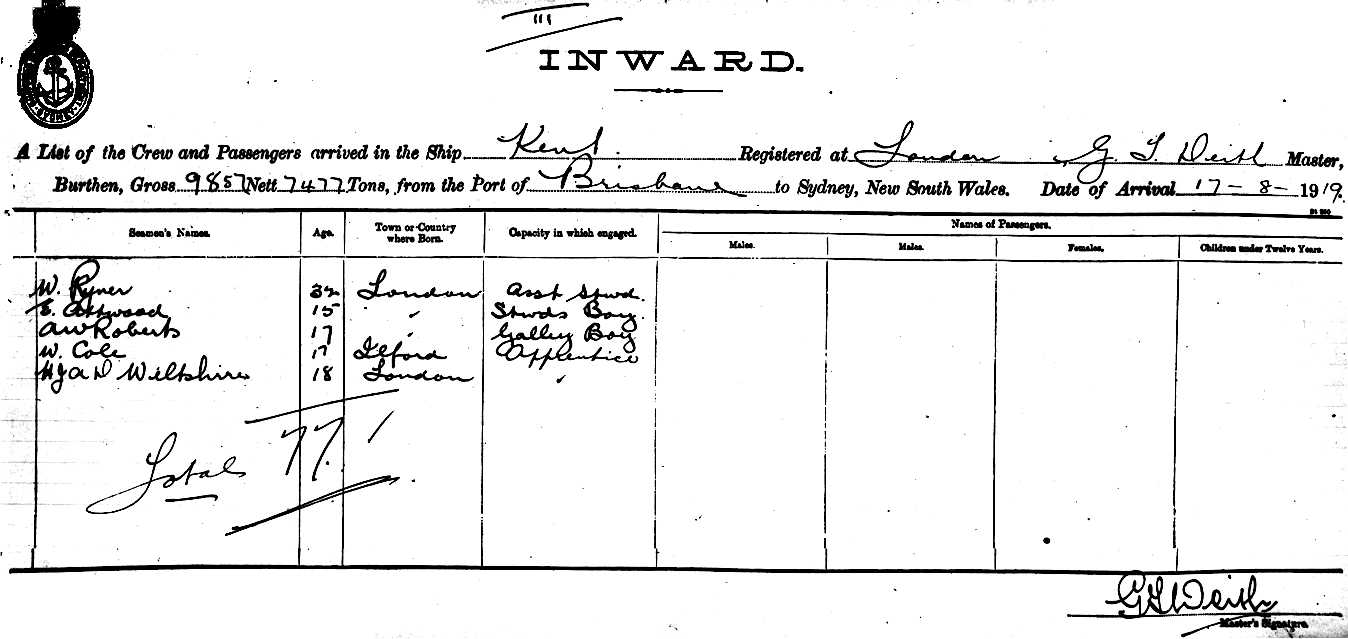 111
INWARD.
A List of the Crew and Passengers arrived in the Ship Kent. Registered at London G. T. Deith Master,
Burthen, Gross 9857 Nett 7477 Tons, from the Port of Brisbane to Sydney, New South Wales. Date of Arrival 17-8-1919.
Seamen's Names. Age. Town or Country where Born. Capacity in which engaged. Names of Passengers.
Males. Males. Females. Children under Twelve Years.
W. Ryner 32 London Asst Stwd.
E. Attwood 15 " Stwds Boy.
A W Roberts 17 " Galley Boy
W. Cole 17 Ilford Apprentice
A D Wiltshire 18 London "
Total 77.
Master's Signature.